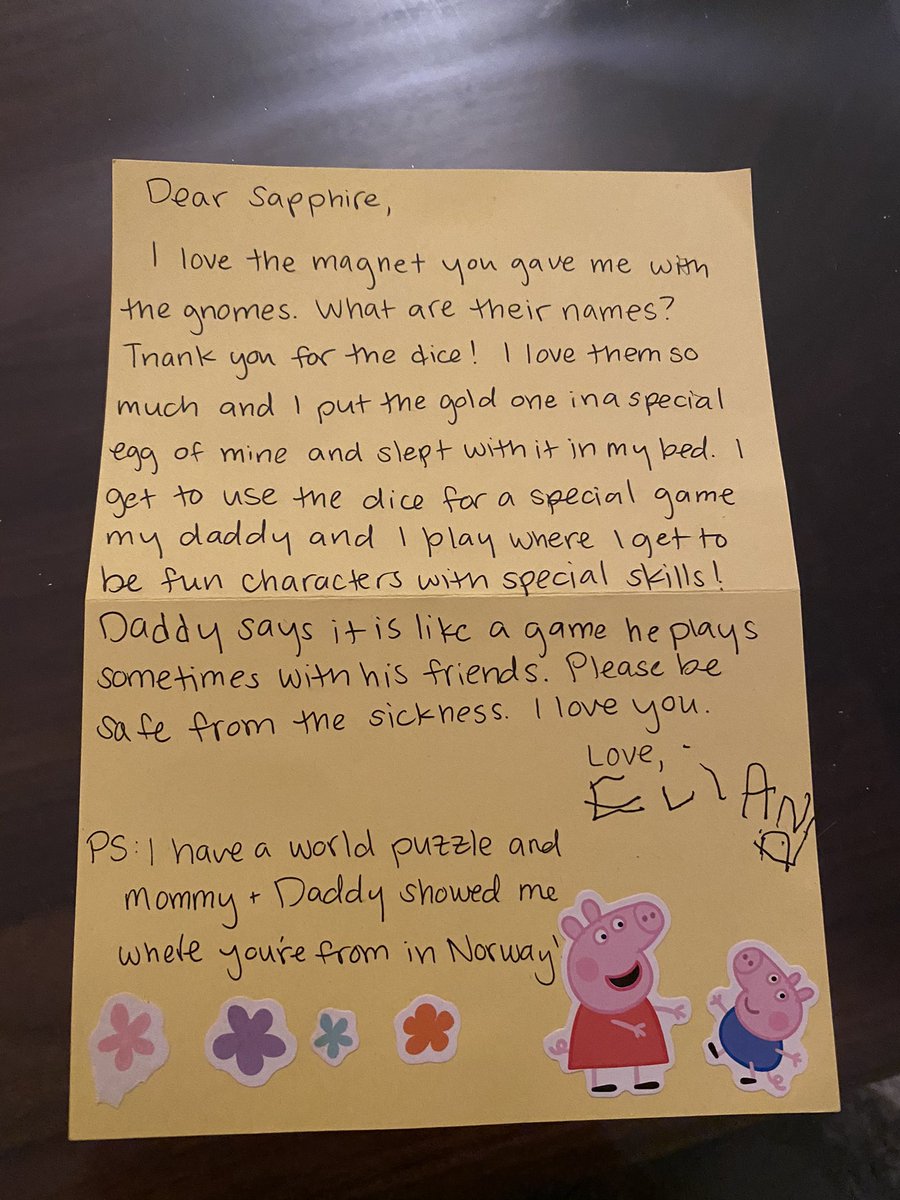 Dear Sapphire,
I love the magnet you gave me with
the gnomes. What are their names?
Thank you for the dice! I love them so
much and I put the gold one in a special
egg of mine and slept with it in my bed. I
get to use the dice for a special game
my daddy and I play where I get to
be fun characters with special skills!
Daddy says it is like a game he plays
sometimes with his friends. Please be
safe from the sickness. I love you.
Love,
ELIAN
PS: I have a world puzzle and
mommy + Daddy showed me
where you're from in Norway!